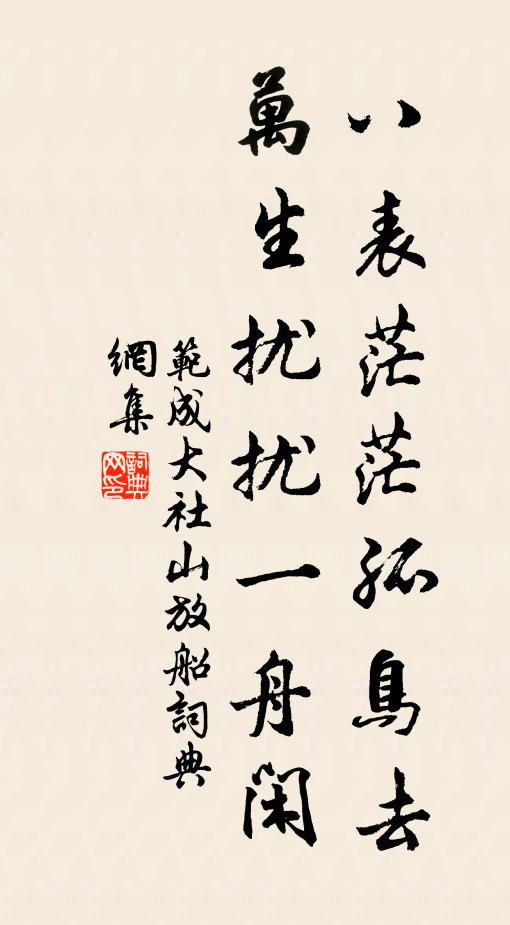 八表茫茫孤鳥去
萬生扰扰一舟闲
範成大社山放船詞典
網集
詞典网印